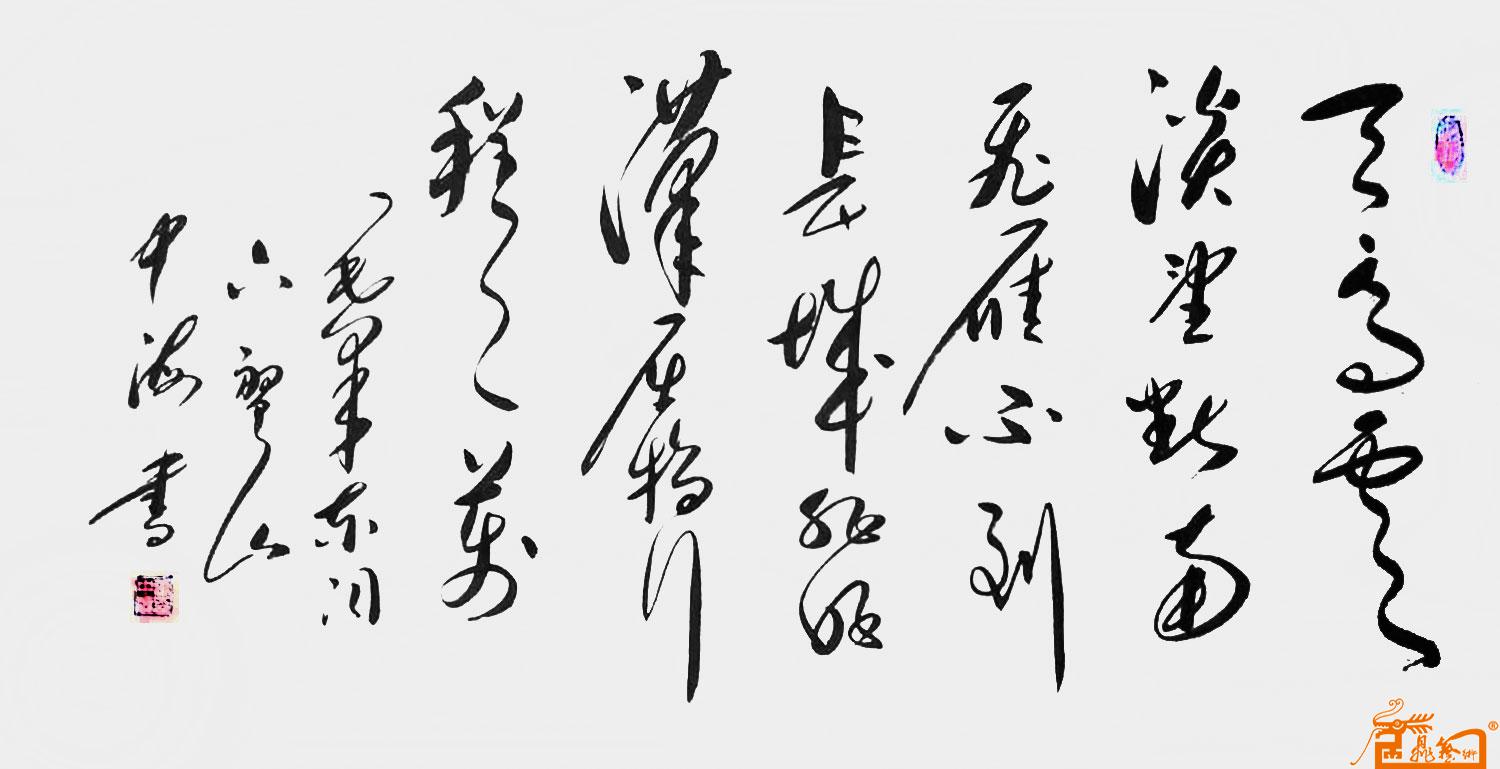 天高雲
淡望斷南
飛雁不到
長城非好
漢屈指行
程二萬
毛澤東詞
六盤山
中海書